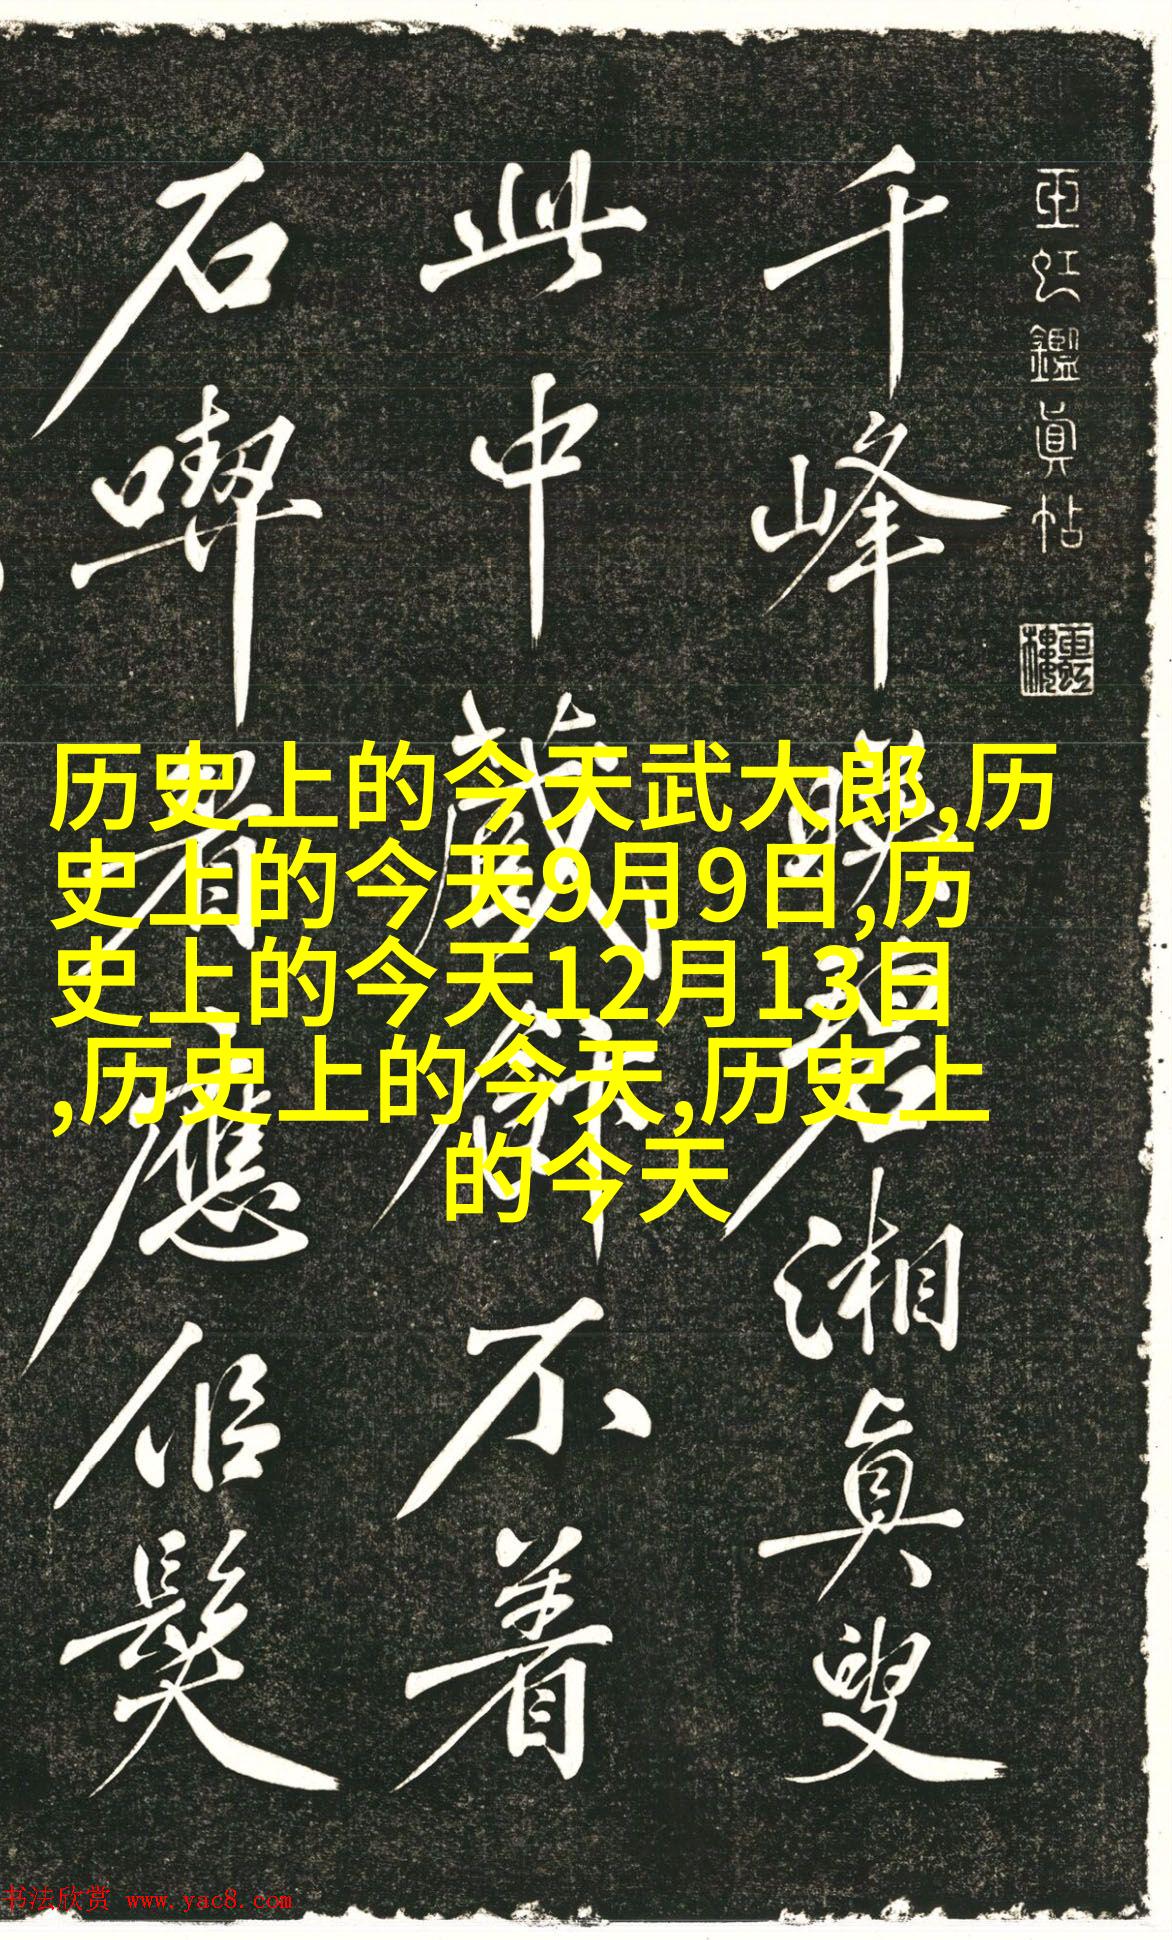 亚虹鑑真帖
千峰映碧湘真叟
此中藏餅不着
石㗫眉應佰髮
历史上的今天武大郎,历
史上的今天9月9日,历
史上的今天12月13日
,历史上的今天,历史上
的今天
书法欣赏 www.yac8.com